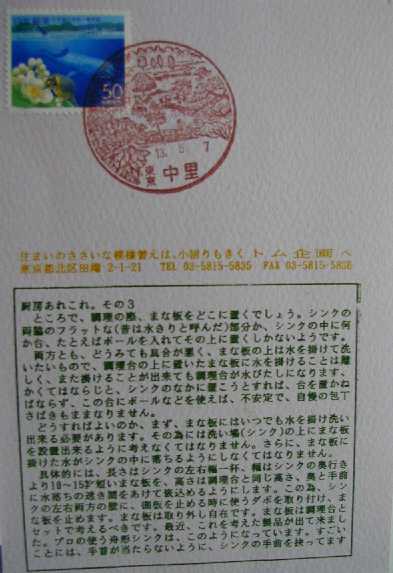 50
13. 8. 7
東京 中里
住まいのささいな模様替えは、小回りもきく トム企画へ
東京都北区田端 2-1-21 TEL 03-5815-5835 FAX 03-5815-5836
厨房あれこれ。その3
ところで、調理の際、まな板をどこに置くでしょう。シンクの
両脇のフラットな(昔は水きりと呼んだ)部分か、シンクの中に何
か台、たとえばボールを入れてその上に置くしかないようです。
両方とも、どうみても具合が悪く、まな板の上は水を掛けて洗
いたいもので、調理台の上に置いたまな板に水を掛けることは難
しく、また掛けることが出来ても調理台が水びたしになります、
かくてはならじと、シンクのなかに置こうとすれば、台を置かね
ばならず、この台にボールなどを使えば、不安定で、自慢の包丁
さばきもままなりません。
どうすればよいのか、まず、まな板にはいつでも水を掛け洗い
出来る必要があります。その為には洗い場(シンク)の上にまな板
を設置出来るように考えなくてはなりません。さらに、まな板に
掛けた水がシンクの中に落ちるようにしなくてはなりません。
具体的には、長さはシンクの左右幅一杯、幅はシンクの奥行き
より10~15㌢短いまな板を、高さは調理台と同じ高さ、奥と手前
に水落ちの透き間をあけて嵌込めるようにします。この為、シン
クの左右両方の壁に、面板を止める時に使うダボを取り付け、ま
な板を止めます。まな板は取り外し自在です。まな板は調理台と
セットで考えるべきです。最近、これを考えた製品が出て来まし
た。プロの使う舟形シンクは、このようになっています。すごい
ことには、手首が当たらないように、シンクの手前を抉ってます